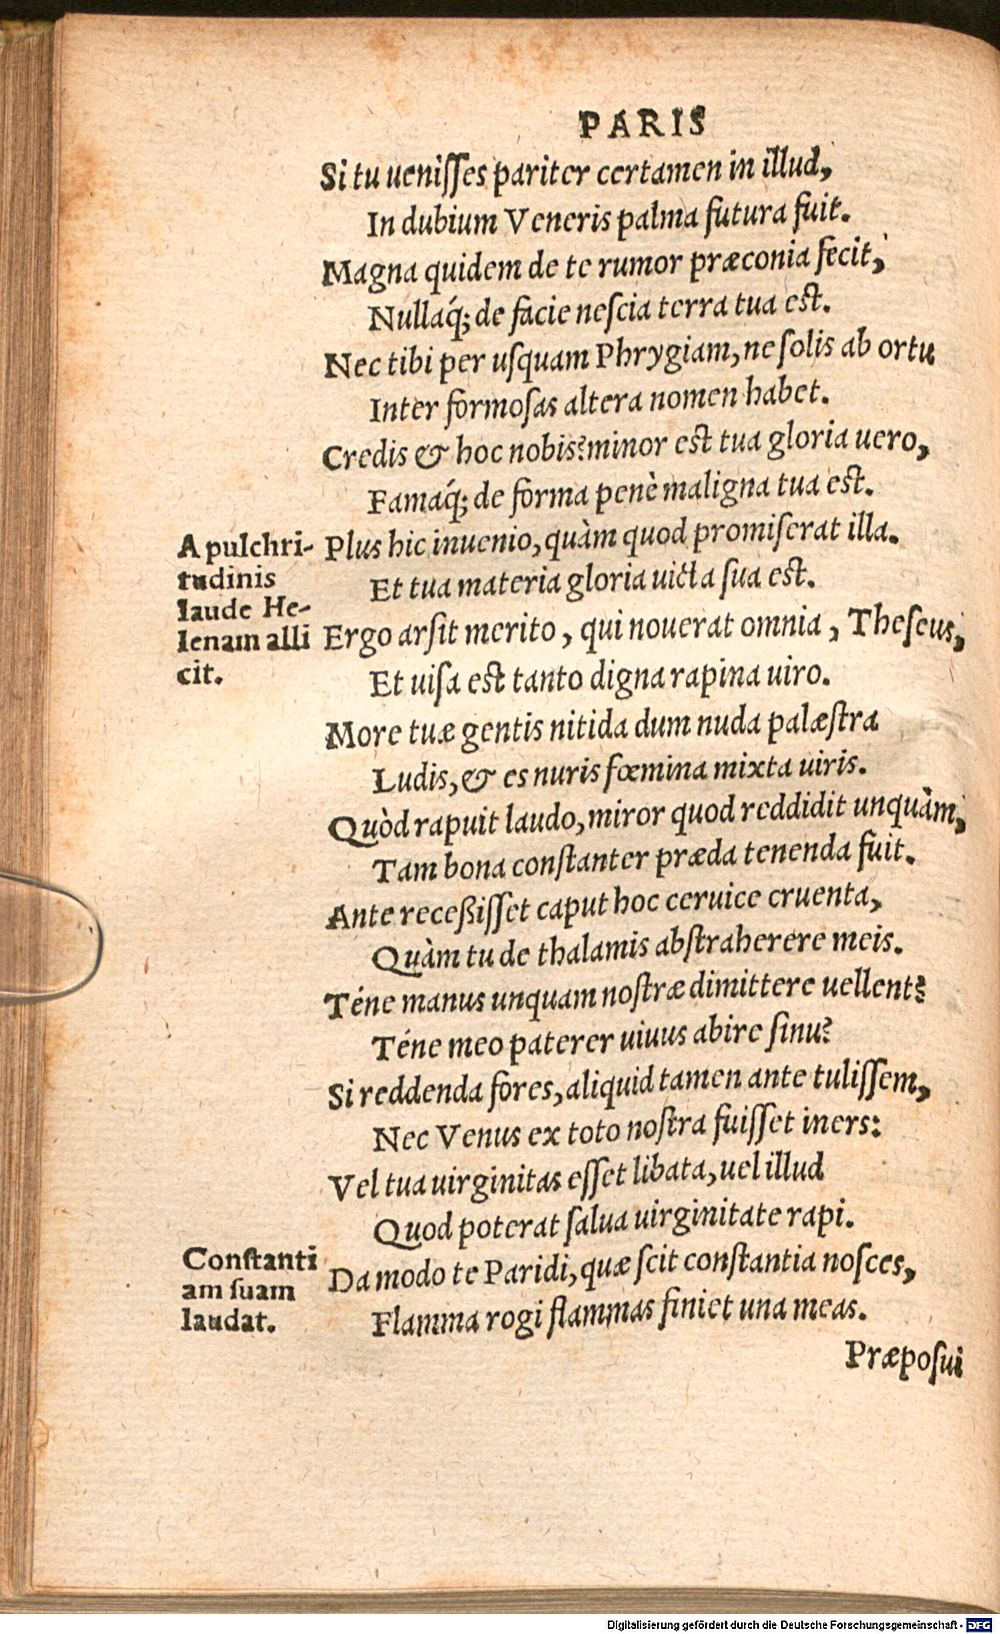 PARIS
Si tu uenisses pariter certamen in illud,
In dubium Veneris palma futura fuit.
Magna quidem de te rumor præconia fecit,
Nullaq́; de facie nescia terra tua est.
Nec tibi per usquam Phrygiam, ne solis ab ortu
Inter formosas altera nomen habet.
Credis & hoc nobis? minor est tua gloria uero,
Famaq́; de forma penè maligna tua est.
A pulchri-
tudinis
laude He-
lenam alli
cit.
Plus hic inuenio, quàm quod promiserat illa.
Et tua materia gloria uicta sua est.
Ergo arsit merito, qui nouerat omnia, Theseus,
Et uisa est tanto digna rapina uiro.
More tuæ gentis nitida dum nuda palæstra
Ludis, & es nuris fœmina mixta uiris.
Quòd rapuit laudo, miror quod reddidit unquàm,
Tam bona constanter præda tenenda fuit.
Ante receßisset caput hoc ceruice cruenta,
Quàm tu de thalamis abstraherere meis.
Téne manus unquam nostræ dimittere uellent?
Téne meo paterer uiuus abire sinu?
Si reddenda fores, aliquid tamen ante tulissem,
Nec Venus ex toto nostra fuisset iners:
Vel tua uirginitas esset libata, uel illud
Quod poterat salua uirginitate rapi.
Constanti
am suam
laudat.
Da modo te Paridi, quæ scit constantia nosces,
Flamma rogi flammas finiet una meas.
Præposui
Digitalisierung gefördert durch die Deutsche Forschungsgemeinschaft - DFG